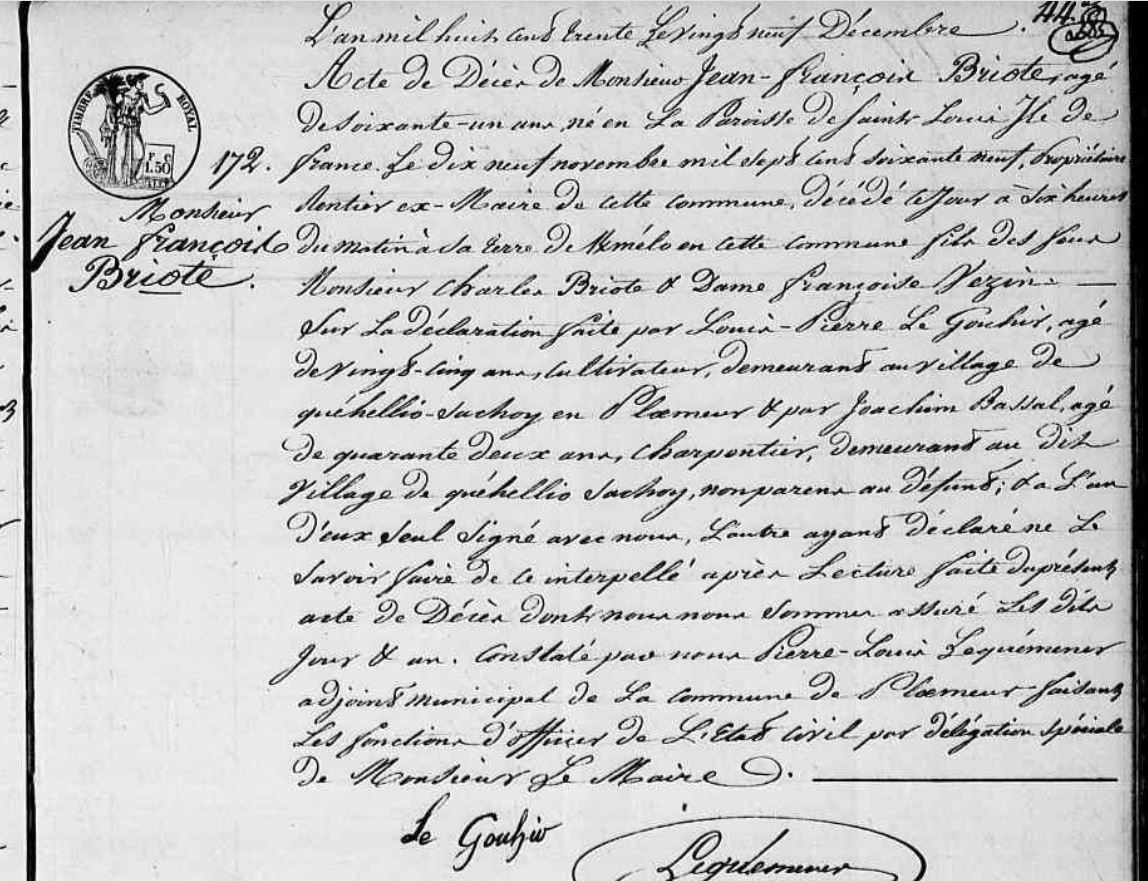 44
L'an mil huit cent trente Le vingt neuf Décembre.
Acte de Décès de Monsieur Jean-françois Briote, agé
de soixante-un ans, né en La Paroisse de saint Louis Ile de
france. Le dix neuf novembre mil sept cent soixante neuf, Propriétaire
Rentier ex-Maire de cette commune, décédé ce Jour à six heures
du matin à sa terre de Kmélo en cette commune fils des feus
Monsieur Charles Briote & Dame françoise Vezin. —
Sur La déclaration faite par Louis-Pierre Le Gouhir, agé
de vingt-cinq ans, cultivateur, demeurant au village de
quéhellio-Sachoy en Plœmeur & par Joachim Bassal, agé
de quarante deux ans, Charpentier, demeurant au dit
Village de quéhellio Sachoy, non parens au défunt; & a L'un
d'eux seul signé avec nous, L'autre ayant déclaré ne Le
savoir faire de ce interpellé après Lecture faite du présent
acte de Décès dont nous nous sommes assuré Les dits
Jour & an. Constaté par nous Pierre-Louis Lequémener
adjoint municipal de La commune de Plœmeur-faisant
Les fonctions d'officier de L'Etat Civil par délégation spéciale
de Monsieur Le Maire.
TIMBRE ROYAL
F. C
1.50
172.
Monsieur
Jean françois
Briote.
Le Gouhir
Lequémener